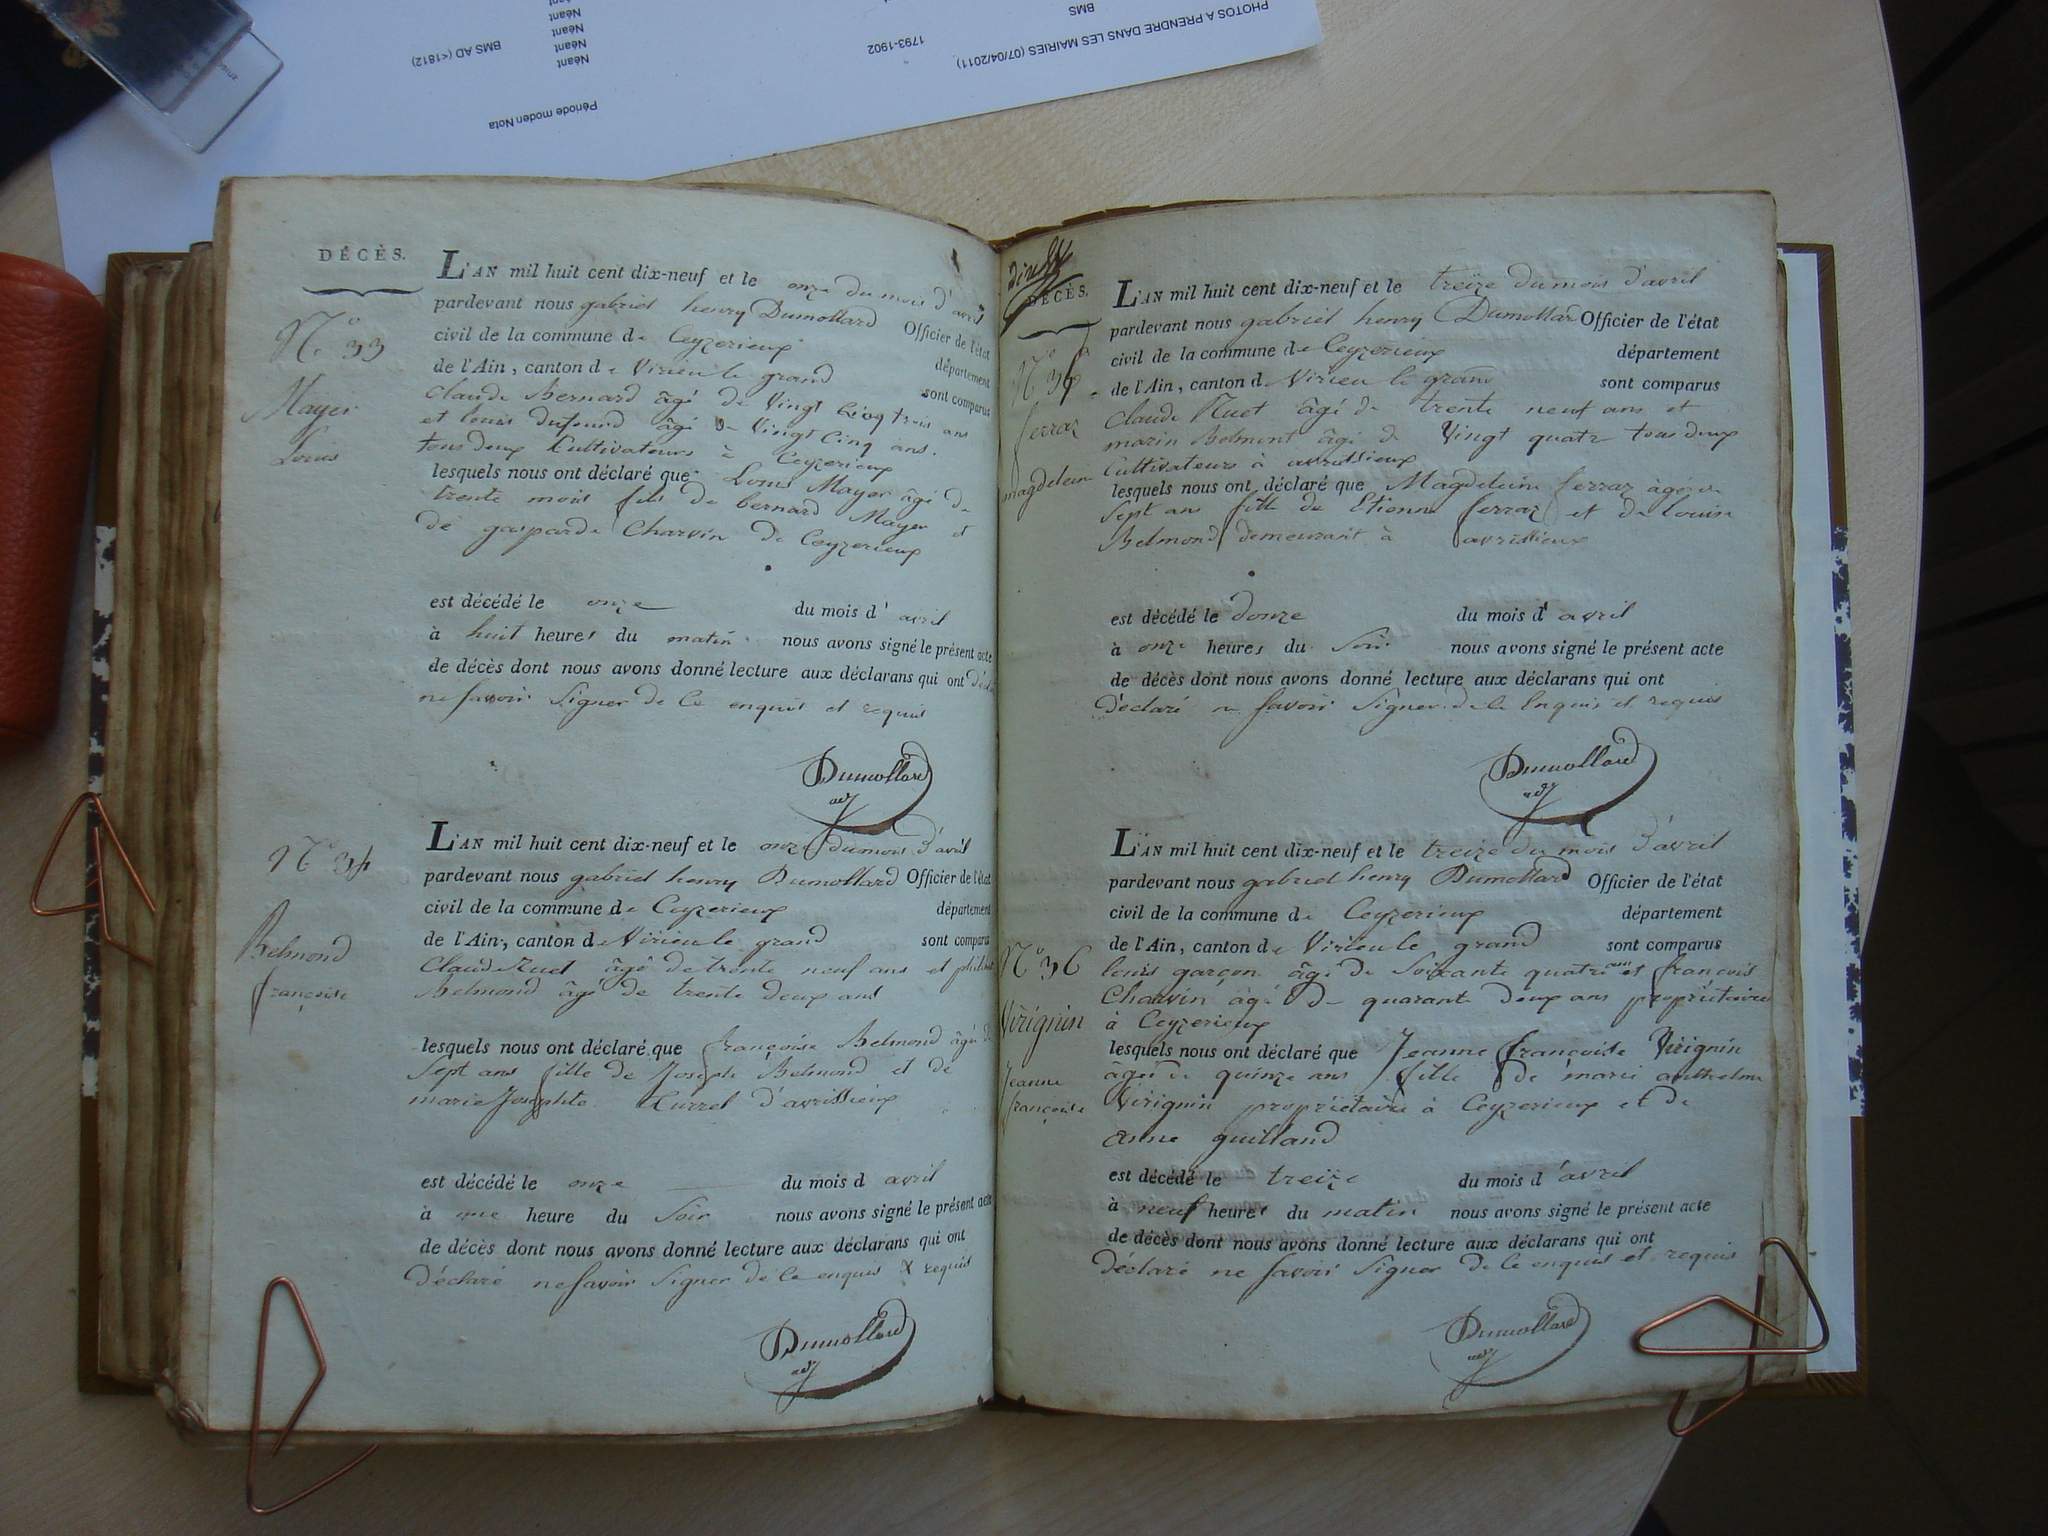 PHOTOS A PRENDRE DANS LES MAIRIES (07/04/2011)
BMS
1793-1902
BMS AD (<1812)
Néant
Néant
Néant
Néant
Période moden Nota
DÉCÈS.
N° 33
Mayer
Louis
L'AN mil huit cent dix-neuf et le onze du mois d'avril
pardevant nous gabriel henry Dumollard Officier de l'état
civil de la commune de Ceyzerieux département
de l'Ain, canton de Virieu le grand sont comparus
Claude Bernard âgé de Vingt trois ans
et louis dufourd âgé de Vingt Cinq ans.
tous deux Cultivateurs à Ceyzerieux
lesquels nous ont déclaré que Louis Mayer âgé de
trente mois fils de bernard Mayer et
de gasparde Charvin de Ceyzerieux
est décédé le onze du mois d'avril
à huit heures du matin nous avons signé le présent acte
de décès dont nous avons donné lecture aux déclarans qui ont
ne savoir Signer de Ce enquis et requis
Dumollard
adj
N° 34
Belmond
françoise
L'AN mil huit cent dix-neuf et le onze du mois d'avril
pardevant nous gabriel henry Dumollard Officier de l'état
civil de la commune de Ceyzerieux département
de l'Ain, canton de Virieu le grand sont comparus
Claude Ruet âgé de trente neuf ans et
Belmond âgé de trente deux ans
lesquels nous ont déclaré que françoise Belmond âgé de
Sept ans fille de Joseph Belmond et de
marie Josephte d'avrissieux
est décédé le onze du mois d avril
à une heure du Soir nous avons signé le présent acte
de décès dont nous avons donné lecture aux déclarans qui ont
déclaré ne savoir Signer de Ce enquis & requis
Dumollard
adj
DÉCÈS.
N°
ferraz
magdeleine
L'AN mil huit cent dix-neuf et le treize du mois d'avril
pardevant nous gabriel henry Dumollard Officier de l'état
civil de la commune de Ceyzerieux département
de l'Ain, canton de Virieu le grand sont comparus
Claude Ruet âgé de trente neuf ans et
marin Belmont âgé de Vingt quatre tous deux
Cultivateurs à avrissieux
lesquels nous ont déclaré que Magdeleine ferraz âgée de
Sept ans fille de Etienne ferraz et de Louise
Belmond demeurant à avrissieux
est décédé le douze du mois d' avril
à onze heures du Soir nous avons signé le présent acte
de décès dont nous avons donné lecture aux déclarans qui ont
déclaré ne savoir Signer de Ce Enquis et requis
Dumollard
adj
N° 36
Virignin
Jeanne
françoise
L'AN mil huit cent dix-neuf et le treize du mois d'avril
pardevant nous gabriel henry Dumollard Officier de l'état
civil de la commune de Ceyzerieux département
de l'Ain, canton de Virieu le grand sont comparus
louis garçon âgé de Soixante quatre ans et françois
Charvin âgé de quarante deux ans propriétaires
à Ceyzerieux
lesquels nous ont déclaré que Jeanne françoise Virignin
âgée de quinze ans fille de marie anthelme
Virignin propriétaire à Ceyzerieux et de
anne guilland
est décédé le treize du mois d'avril
à neuf heures du matin nous avons signé le présent acte
de décès dont nous avons donné lecture aux déclarans qui ont
déclaré ne savoir Signer de Ce enquis et requis
Dumollard
adj